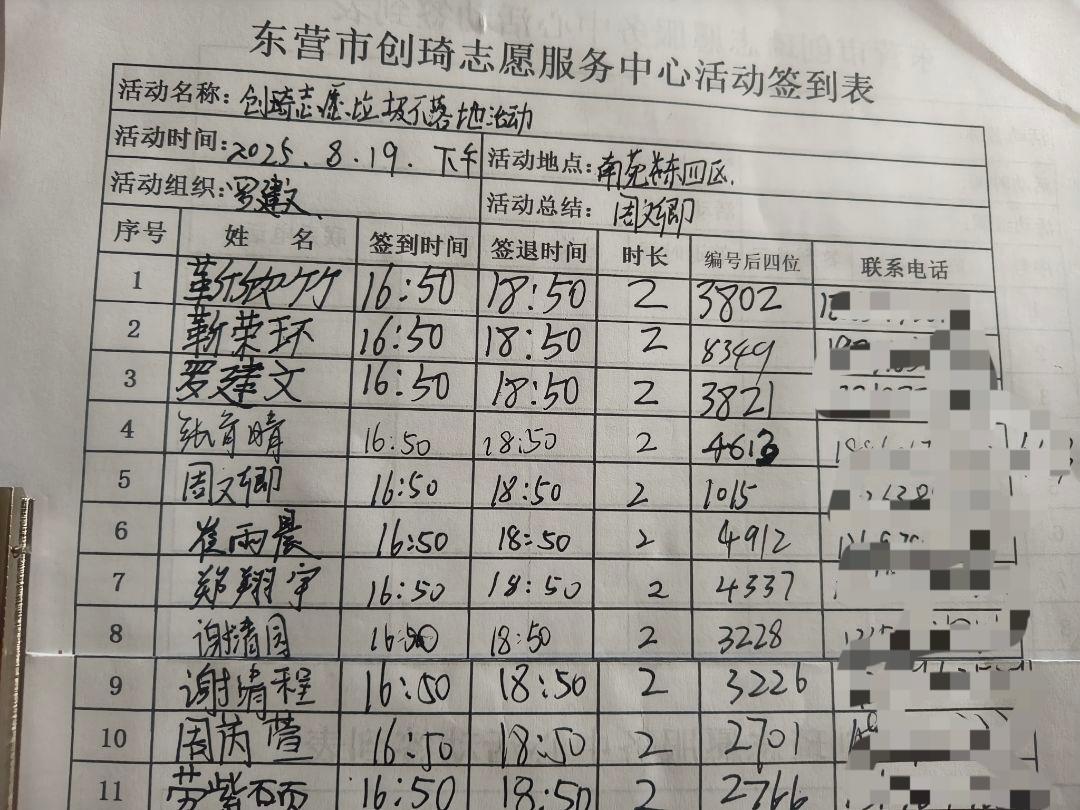 东营市创琦志愿服务中心活动签到表
活动名称：创琦志愿垃圾不落地活动
活动时间：2025.8.19.下午 活动地点：南苑东四区.
活动组织：罗建文 活动总结：周文卿
序号 姓名 签到时间 签退时间 时长 编号后四位 联系电话
1 16:50 18:50 2 3802
2 靳荣环 16:50 18:50 2 8349
3 罗建文 16:50 18:50 2 3821
4 张育晴 16:50 18:50 2 4613
5 周文卿 16:50 18:50 2 1015
6 崔雨晨 16:50 18:50 2 4912
7 郑翔宇 16:50 18:50 2 4337
8 谢清园 16:50 18:50 2 3228
9 谢晴程 16:50 18:50 2 3226
10 周芮萱 16:50 18:50 2 2701
11 16:50 18:50 2 2766